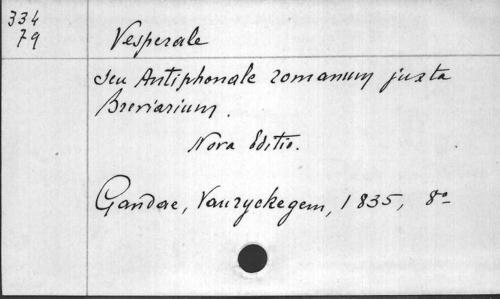 334
79
Vesperale
seu Antiphonale romanum juxta
Breviarium.
Nova Editio.
Gandae, Vanryckegem, 1835, 8º